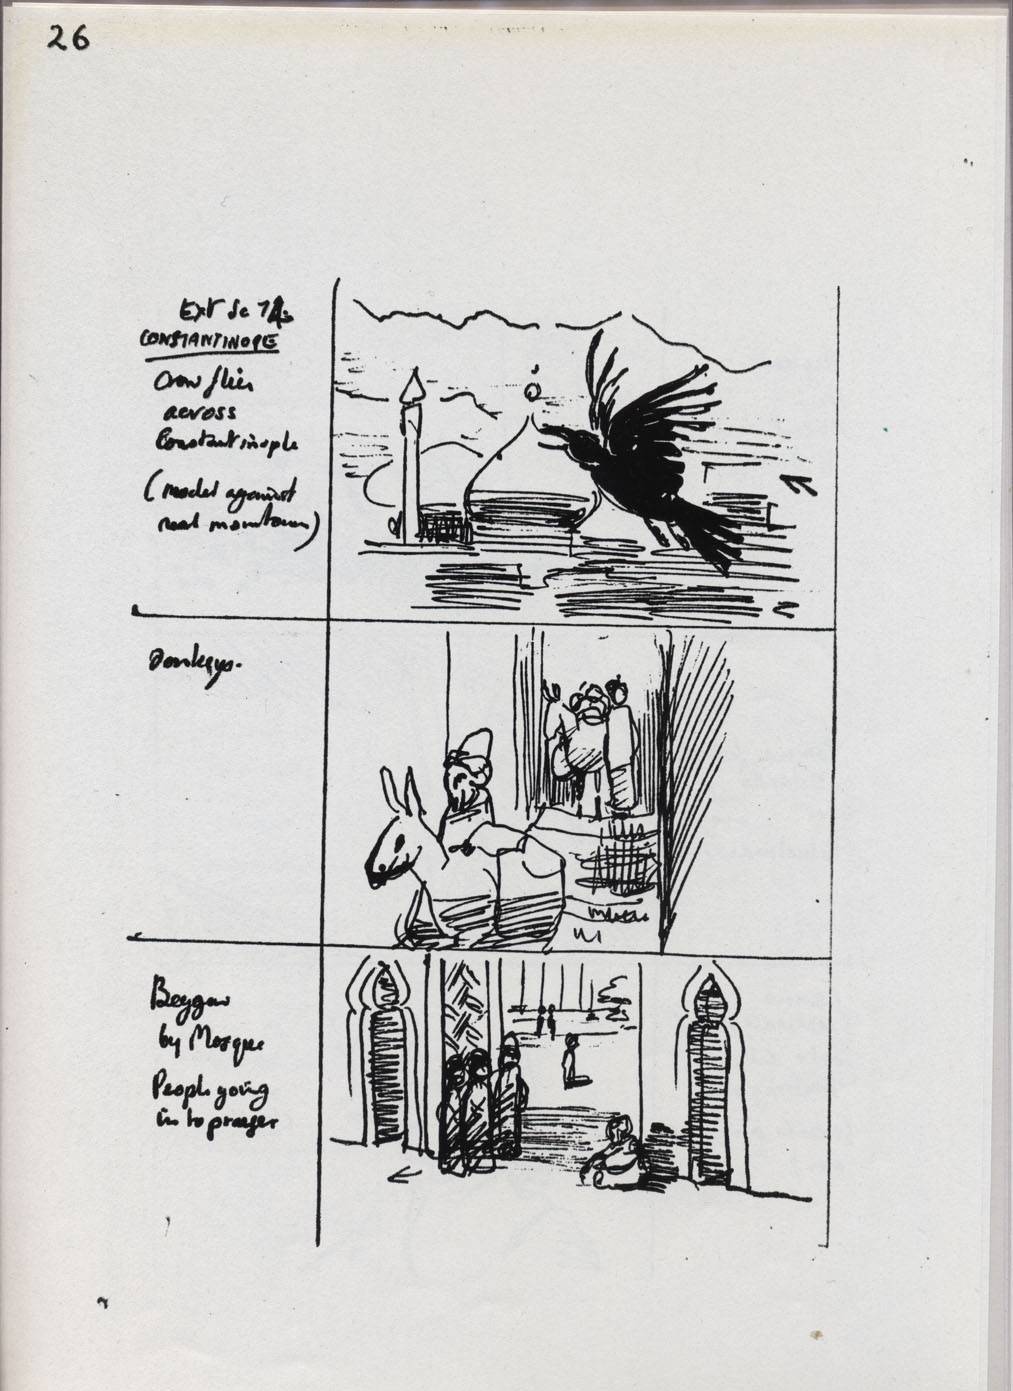 26
Ext Sc 14
CONSTANTINOPLE
Crow flies
across
Constantinople
(model against
real mountains)
Donkeys.
Beggar
by Mosque
People going
in to prayer